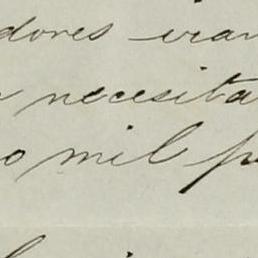 dores eran
necesita
o mil p